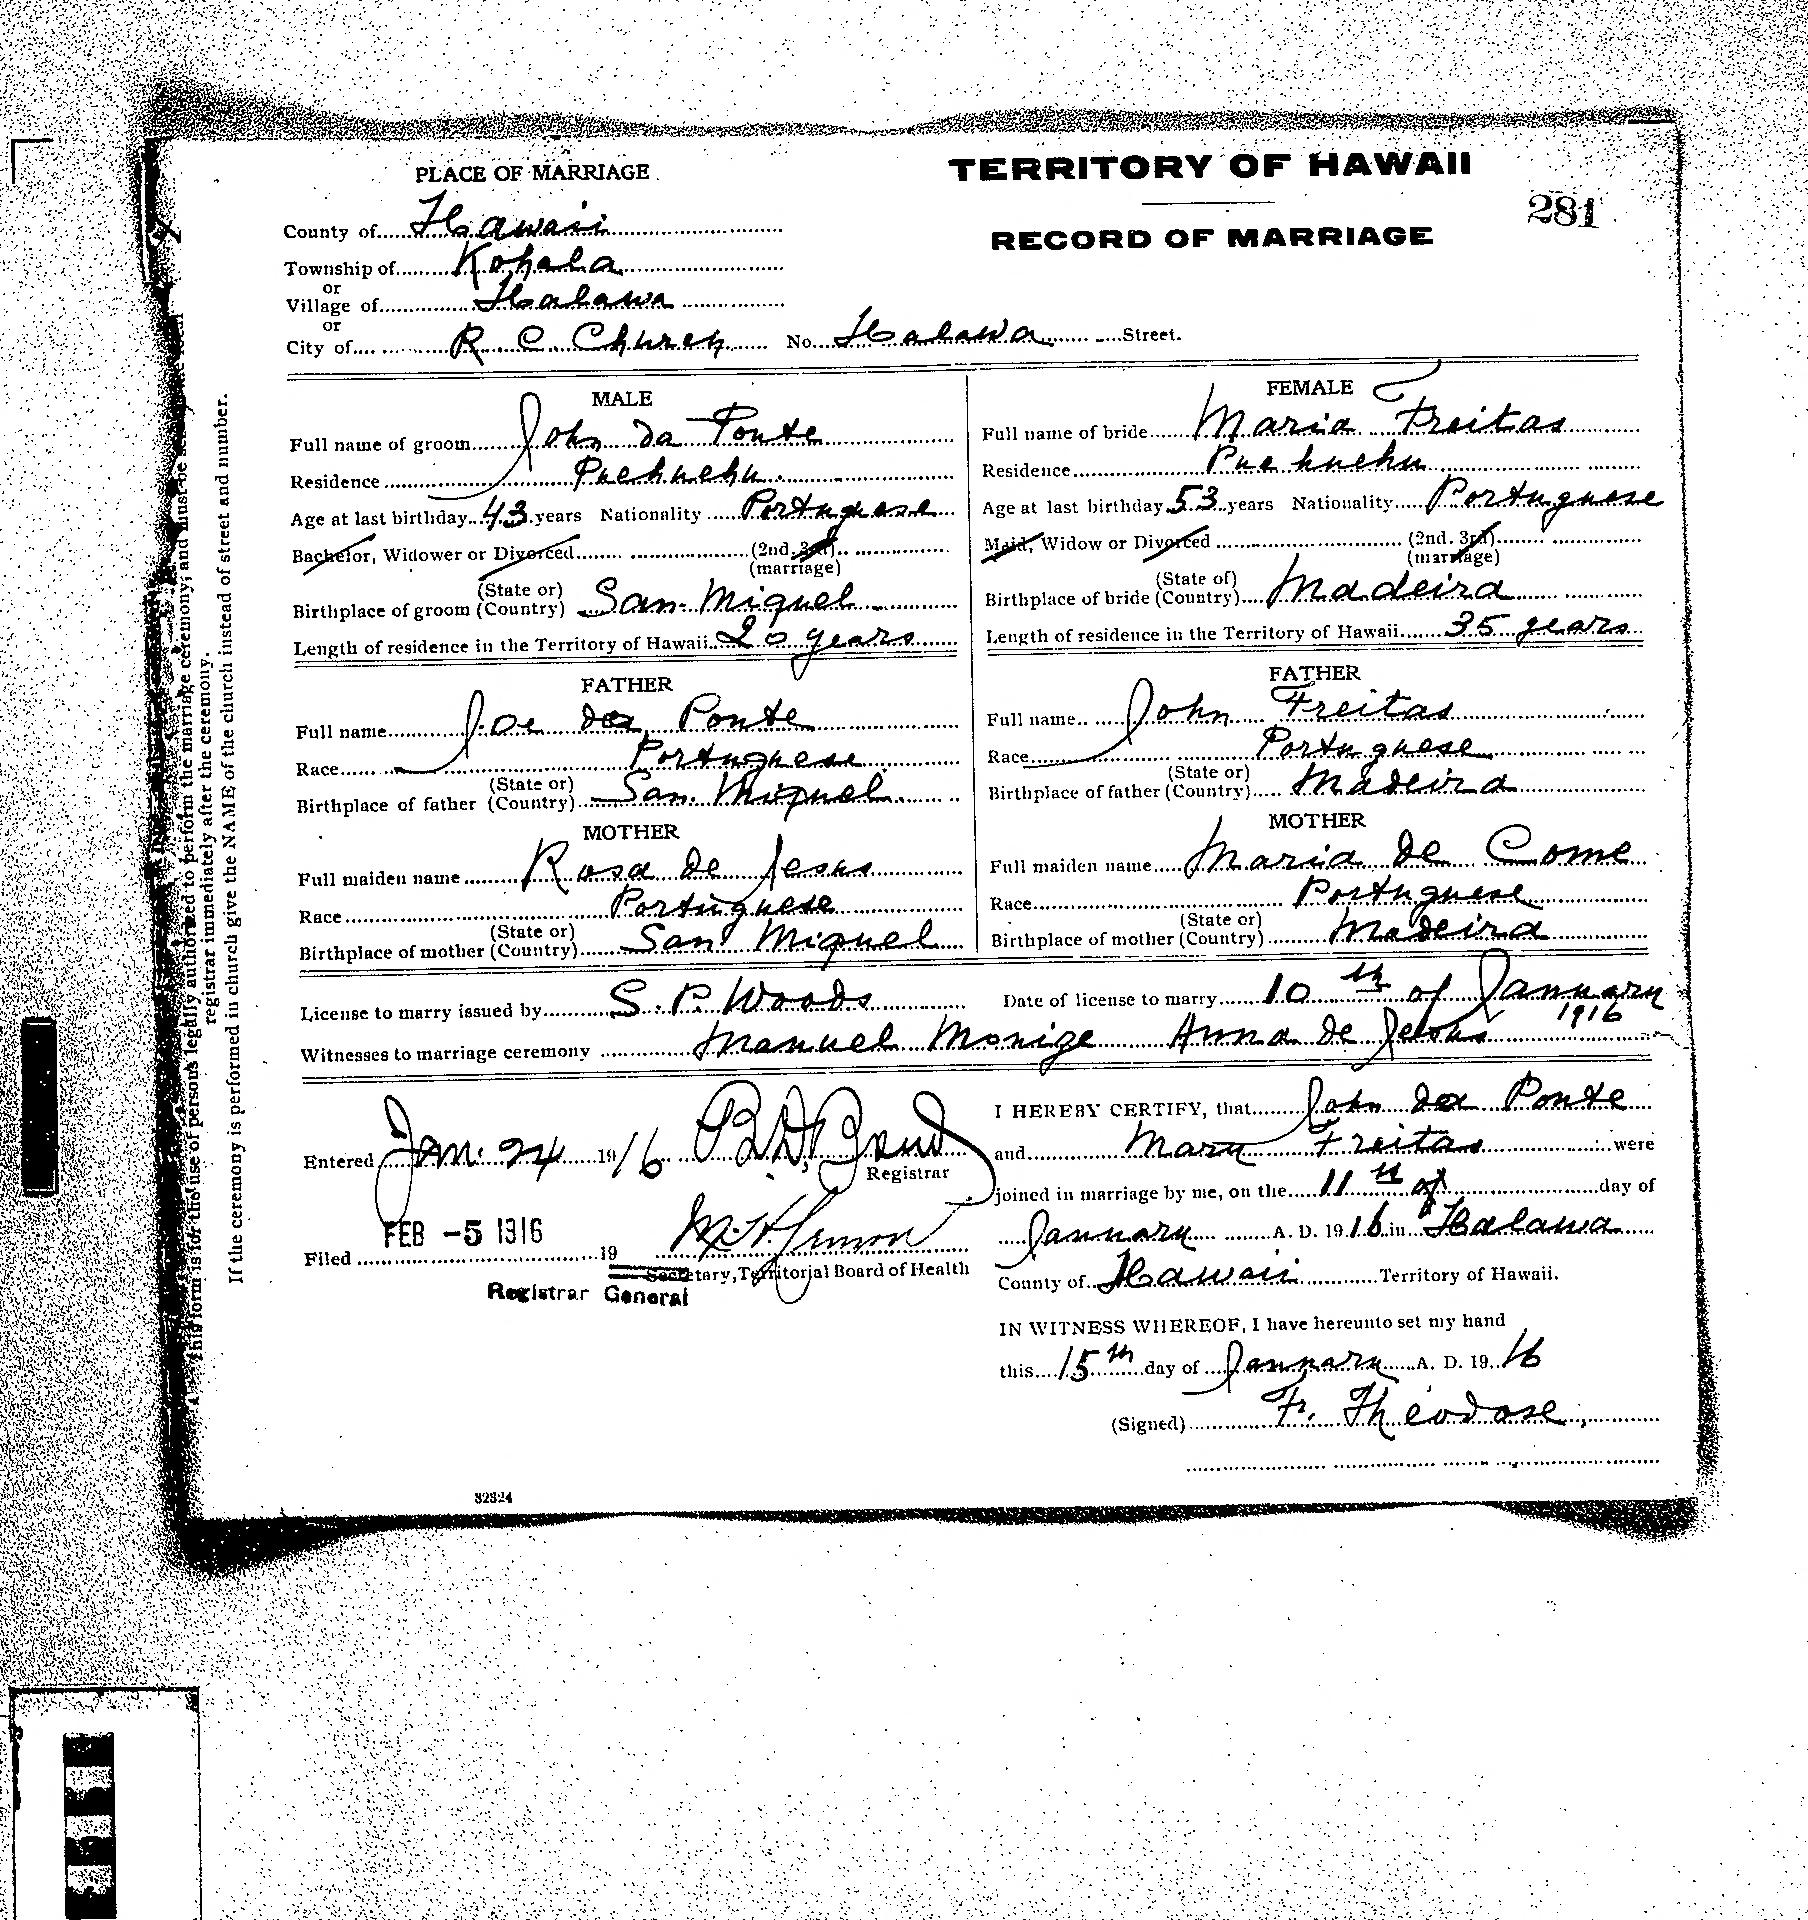 PLACE OF MARRIAGE
TERRITORY OF HAWAII
281
RECORD OF MARRIAGE
County of Hawaii
Township of Kohala
or
Village of Halawa
or
City of R. C. Church No. Halawa Street.
MALE
Full name of groom John da Ponte
Residence Puehuehu
Age at last birthday 43 years Nationality Portuguese
Bachelor, Widower or Divorced (2nd. 3rd)
(marriage)
(State or)
Birthplace of groom (Country) San Miguel
Length of residence in the Territory of Hawaii 20 years
FATHER
Full name Joe da Ponte
Race Portuguese
(State or)
Birthplace of father (Country) San Miguel
MOTHER
Full maiden name Rosa de Jesus
Race Portuguese
(State or)
Birthplace of mother (Country) San Miguel
FEMALE
Full name of bride Maria Freitas
Residence Puehuehu
Age at last birthday 53 years Nationality Portuguese
Maid, Widow or Divorced (2nd. 3rd)
(marriage)
(State of)
Birthplace of bride (Country) Madeira
Length of residence in the Territory of Hawaii 35 years
FATHER
Full name John Freitas
Race Portuguese
(State or)
Birthplace of father (Country) Madeira
MOTHER
Full maiden name Maria de Come
Race Portuguese
(State or)
Birthplace of mother (Country) Madeira
License to marry issued by S. P. Woods Date of license to marry 10th of January
1916
Witnesses to marriage ceremony Manuel Monize Anna de Jesus
Entered Jan. 24 1916 B. D. Bond
Registrar
FEB -5 1916
Filed 19
Secretary, Territorial Board of Health
Registrar General
I HEREBY CERTIFY, that John da Ponte
and Mary Freitas were
joined in marriage by me, on the 11th of day of
January A. D. 1916 in Halawa
County of Hawaii Territory of Hawaii.
IN WITNESS WHEREOF, I have hereunto set my hand
this 15th day of January A. D. 1916
(Signed) Fr. Theodose
32324
This form is for the use of persons legally authorized to perform the marriage ceremony; and must be
registrar immediately after the ceremony.
If the ceremony is performed in church give the NAME of the church instead of street and number.